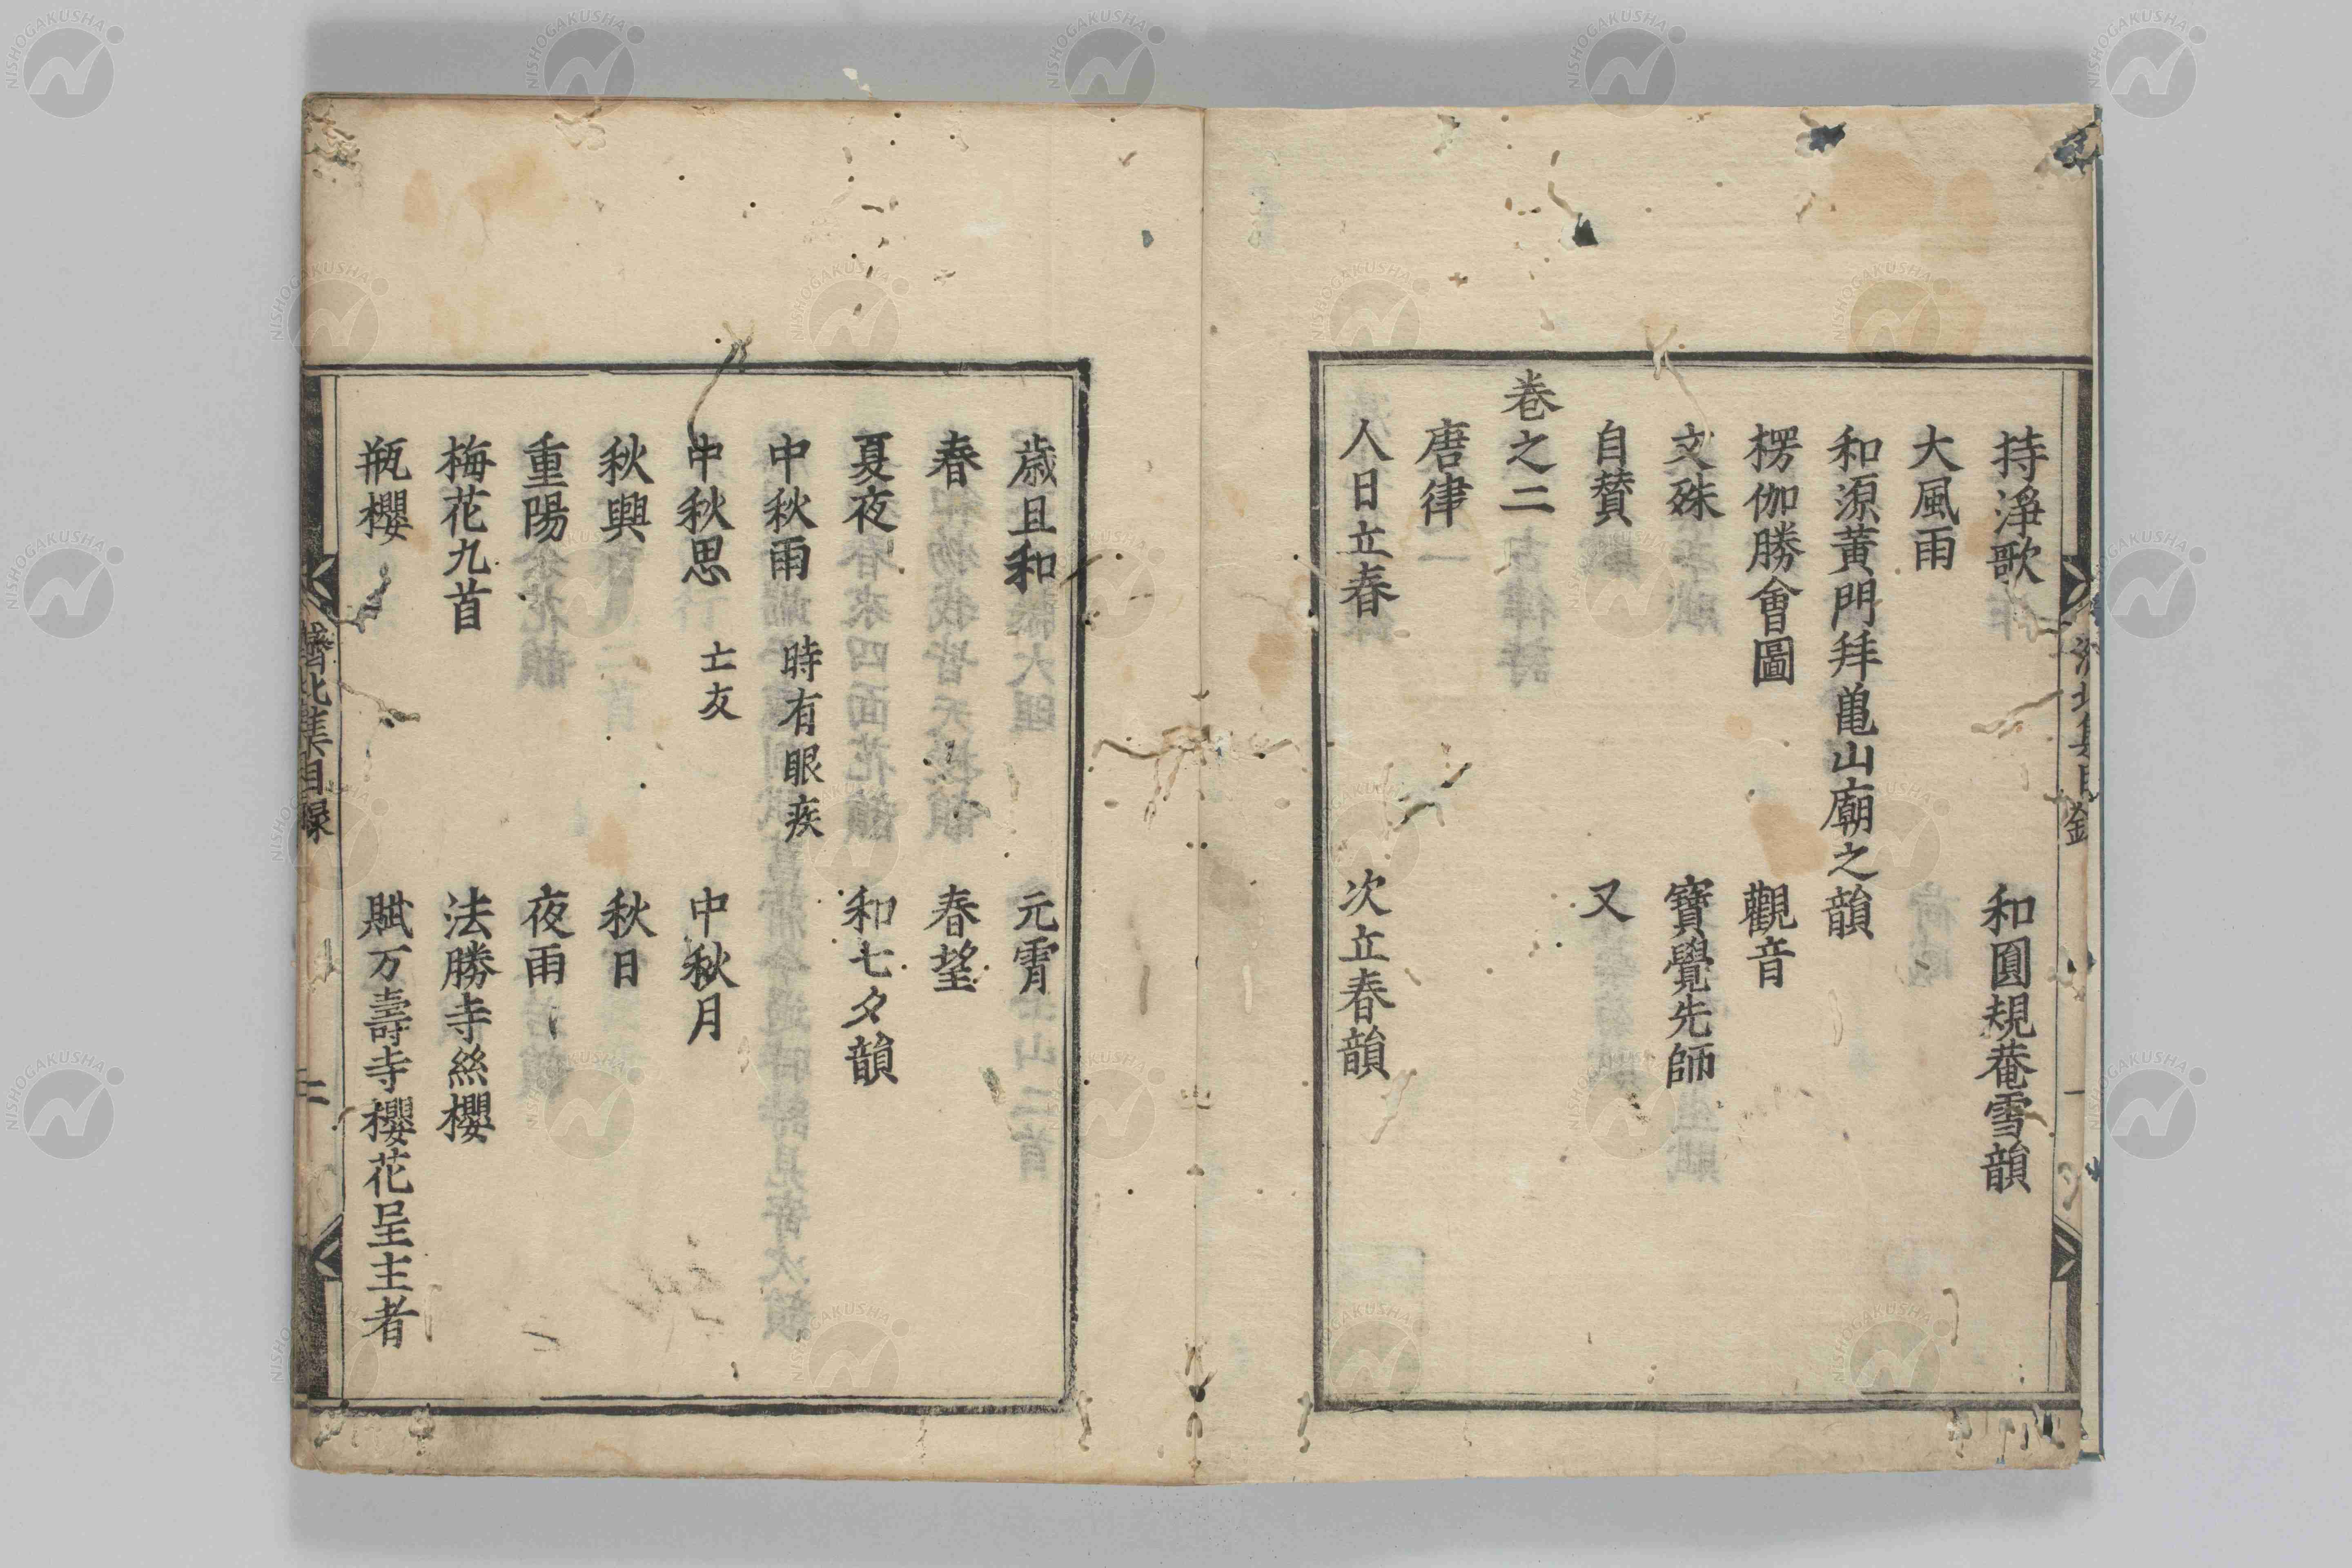 持淨歌　和圓規菴雪韻
大風雨
和源黄門拜亀山廟之韻
楞伽勝會圖　觀音
文殊　寶覺先師
自賛　又
卷之二
唐律
人日立春　次立春韻
歳旦和　元霄
春　春望
夏夜　和七夕韻
中秋雨　時有眼疾
中秋思　亡友　中秋月
秋興　秋日
重陽　夜雨
梅花九首　法勝寺絲櫻
瓶櫻　賦万壽寺櫻花呈主者
濟北集目録
二
NISHOGAKUSHA